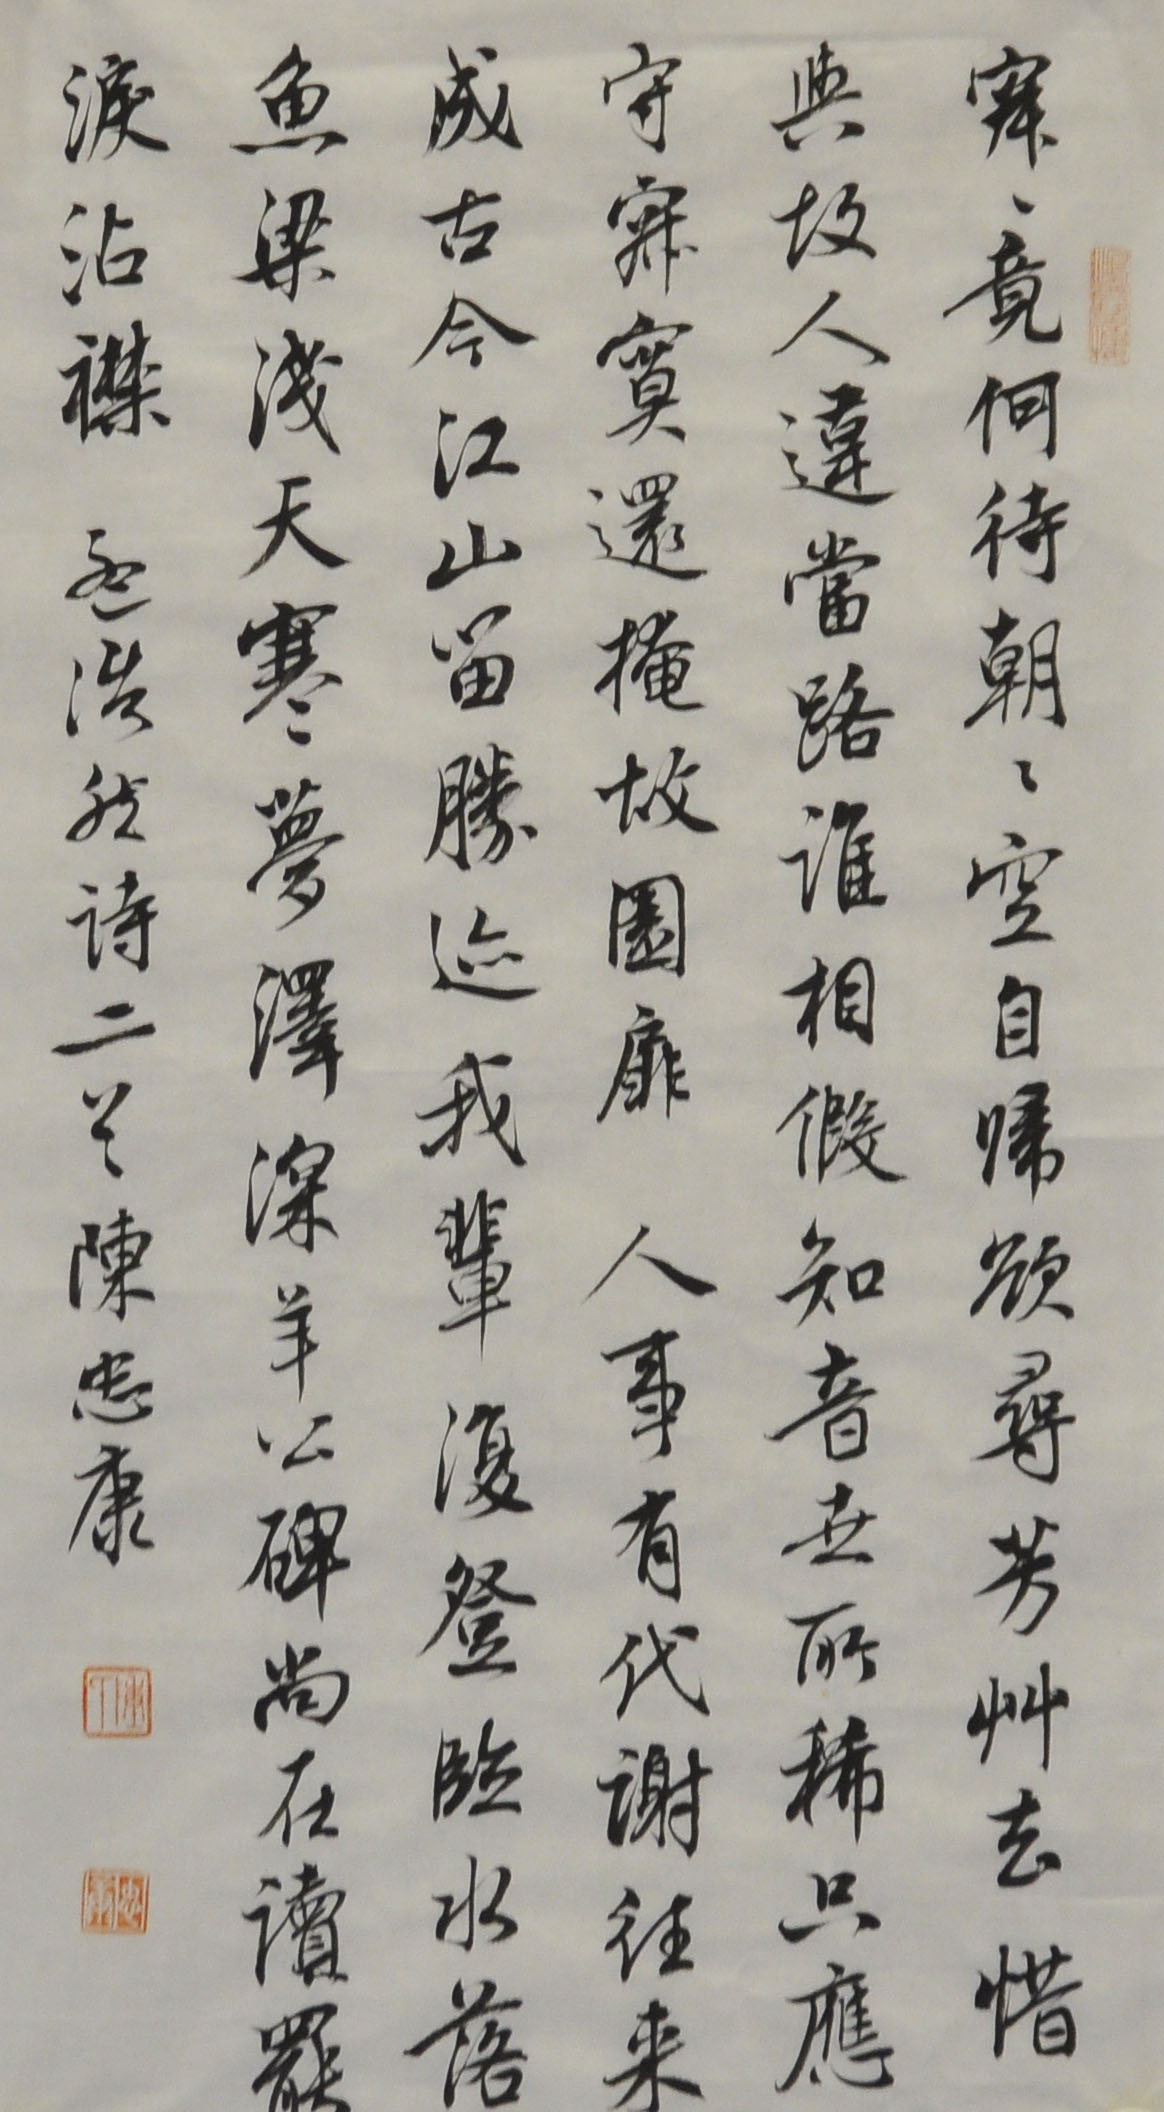 寂〻竟何待朝〻空自歸欲尋芳艸去惜
與故人違當路誰相假知音世所稀只應
守寂寞還掩故園扉 人事有代謝往来
成古今江山留勝迹我輩復登臨水落
魚梁淺天寒夢澤深羊公碑尚在讀罷
淚沾襟 孟浩然诗二首陳忠康